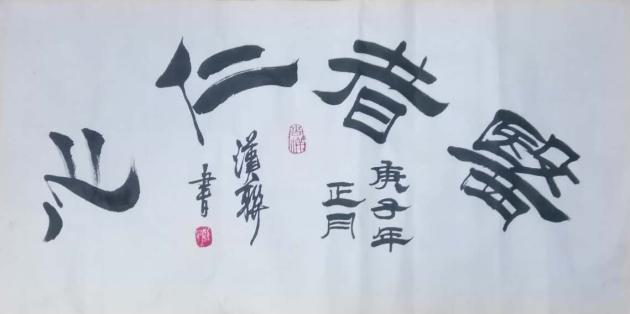 醫者仁心
庚子年
正月
漢聯
書